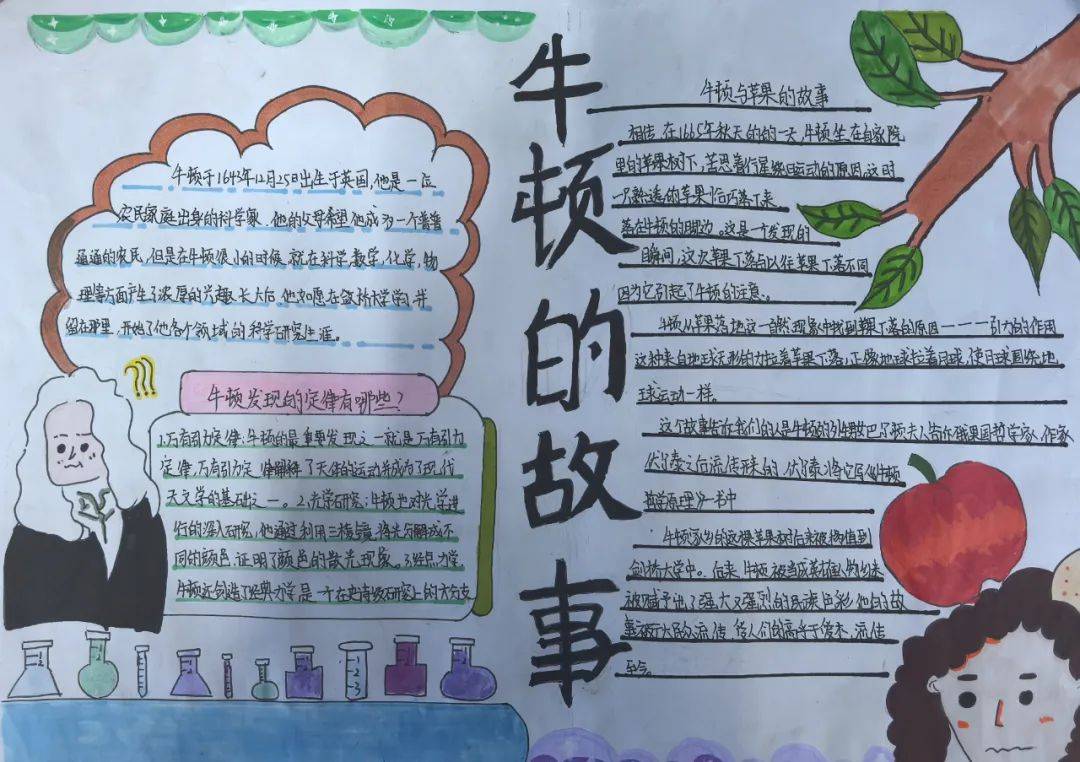 牛顿的故事
牛顿于1643年12月25日出生于英国,他是一位
农民家庭出身的科学家。他的父母希望他成为一个普普
通通的农民,但是在牛顿很小的时候,就在科学,数学,化学,物
理等方面产生了浓厚的兴趣,长大后,他如愿在剑桥大学学习,并
留在那里,开始了他各个领域的科学研究生涯。
牛顿发现的定律有哪些?
1.万有引力定律:牛顿的最重要发现之一就是万有引力
定律,万有引力定律解释了天体的运动并成为了现代
天文学的基础之一。2.光学研究:牛顿也对光学进
行的深入研究,他通过利用三棱镜,将光分解成不
同的颜色,证明了颜色的散光现象。3.经典力学
牛顿还创造了经典力学是一个在史诗级研究上的大分支
牛顿与苹果的故事
相传,在1665年秋天的的一天,牛顿坐在自家院
里的苹果树下,苦思着行星绕日运动的原因,这时
一只熟透的苹果恰巧落下来
落在牛顿的脚边。这是一个发现的
瞬间,这次苹果下落与以往苹果下落不同
因为它引起了牛顿的注意。
牛顿从苹果落地这一自然现象中找到苹果下落的原因————引力的作用
这种来自地球无形的力拉着苹果下落,正像地球拉着月球,使月球围绕地
球运动一样。
这个故事告诉我们的人是牛顿的外甥女巴尔顿夫人告诉俄果国哲学家,作家
伏尔泰之后流传来的,伏尔泰将它写似牛顿
哲学原理》一书中
牛顿家乡的这棵苹果树后来被移植到
剑桥大学中。后来,牛顿被当成
被赋予出了强大又强烈的
流传
至今。